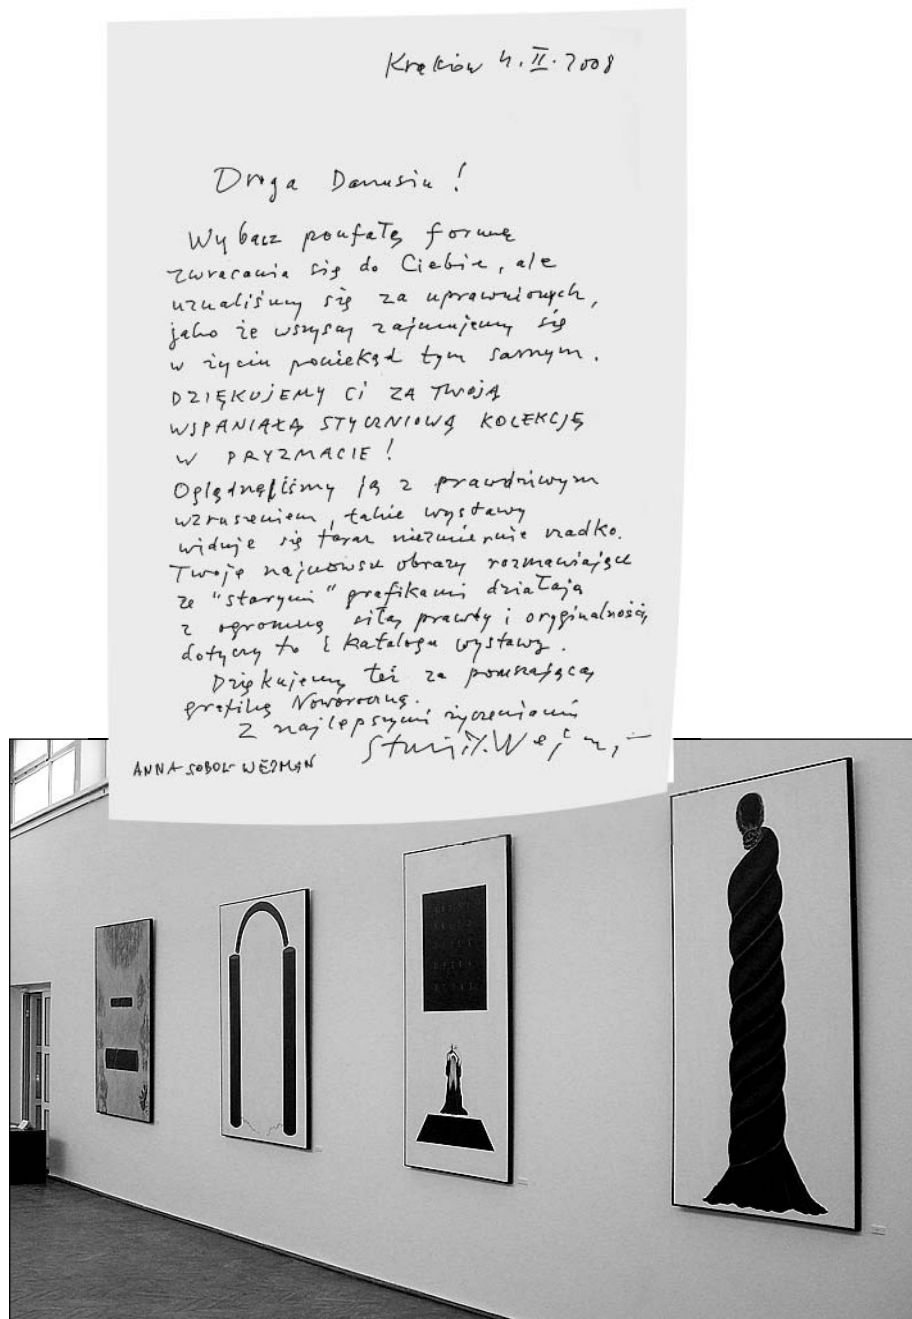 Kraków 4.II.2008
Droga Danusiu!
Wybacz poufałą formę
zwracania się do Ciebie, ale
uznaliśmy się za uprawnionych,
jako że wszyscy zajmujemy się
w życiu poniekąd tym samym.
DZIĘKUJEMY CI ZA TWOJĄ
WSPANIAŁĄ STYCZNIOWĄ KOLEKCJĘ
W PRYZMACIE!
Oglądnęliśmy ją z prawdziwym
wzruszeniem, takie wystawy
widuje się teraz niezmiernie rzadko.
Twoje najnowsze obrazy rozmawiające
ze "starymi" grafikami działają
z ogromną siłą prawdy i oryginalnością
dotyczy to i katalogu wystawy.
Dziękujemy też za poruszającą
grafikę Noworoczną.
Z najlepszymi życzeniami
Stanisł. Wejman
ANNA SOBOL-WEJMAN